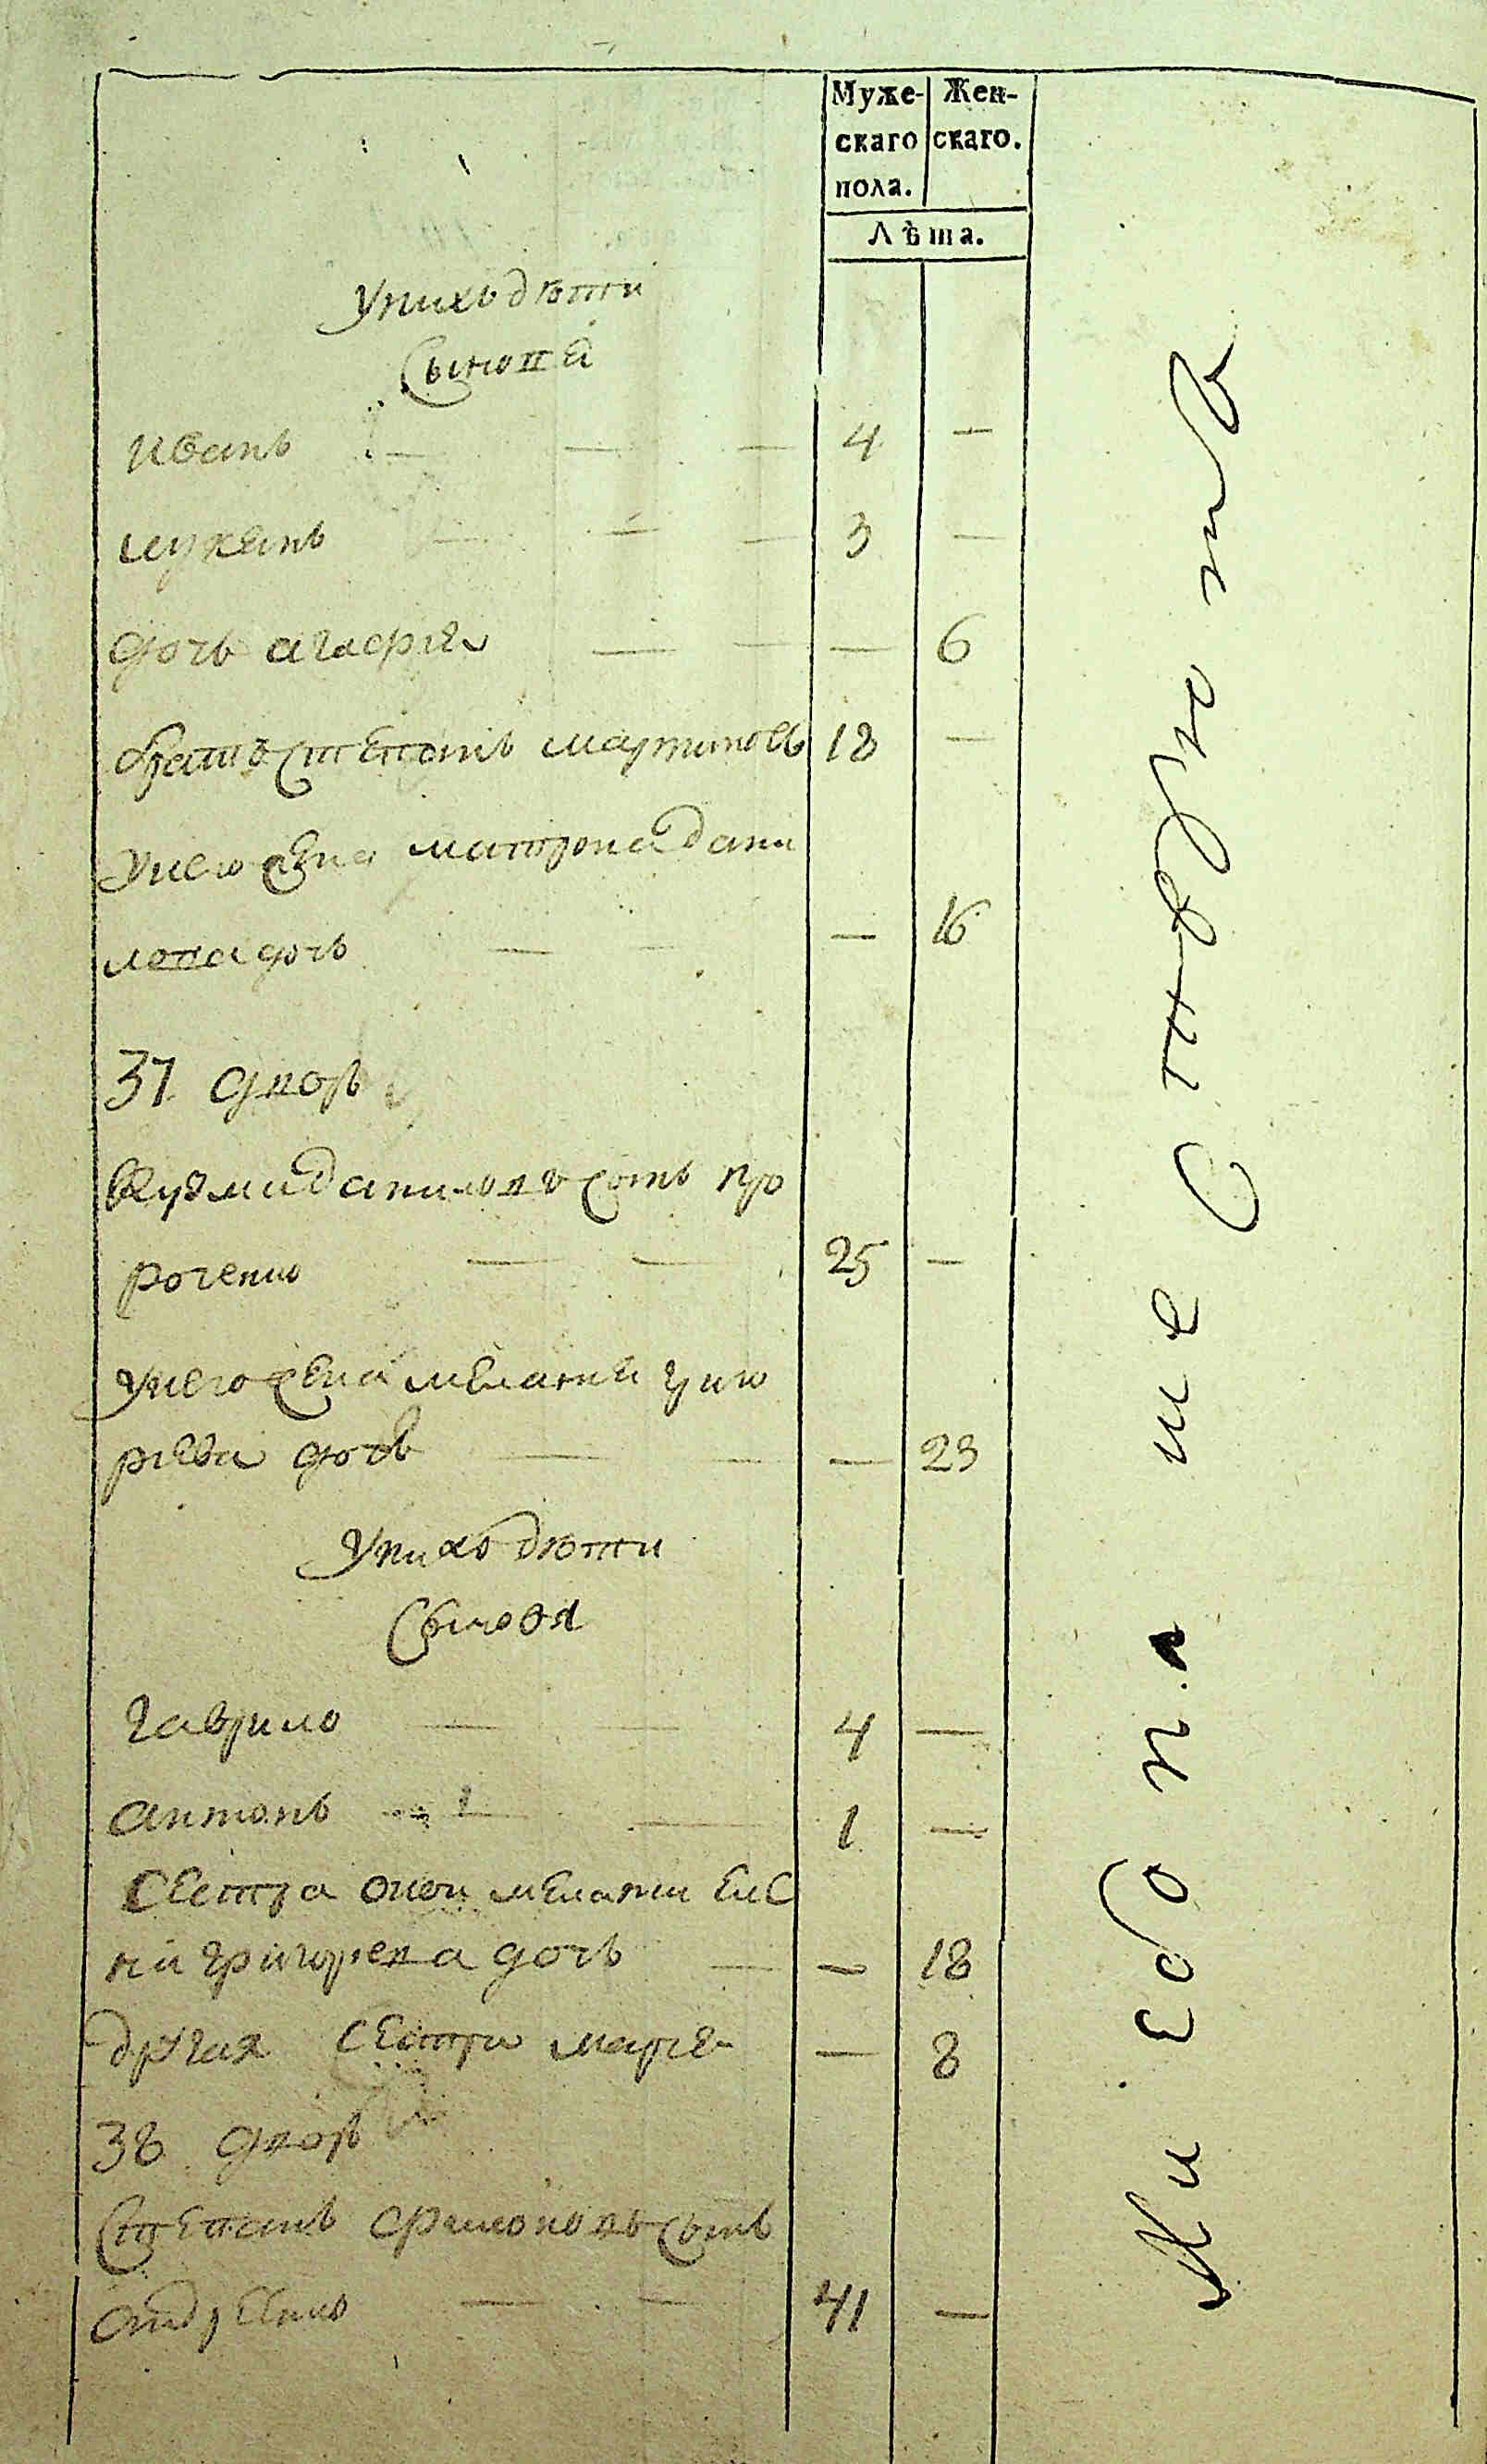 Муже-
скаго
пола.
Жен-
скаго.
Лѣта.
У нихъ дѣти
Сынова
иванъ — — — 4 —
лукянъ — — — 3 —
дочь агафия — — — 6
братъ степанъ мартиновъ 18 —
у него жена матрона дани
лова дочь — — — 16
37. дворъ
Кузма даниловъ сынъ про
роченко — — 25 —
у него жена мелания григо
риева дочь — — — 23
У нихъ дѣти
Сыновя
гаврило — — 4 —
антонъ — — 1 —
сестра оной мелании
григорева дочь — — 18
другая сестра марие — 8
38 дворъ
Степанъ филоновъ сынъ
— — 41 —